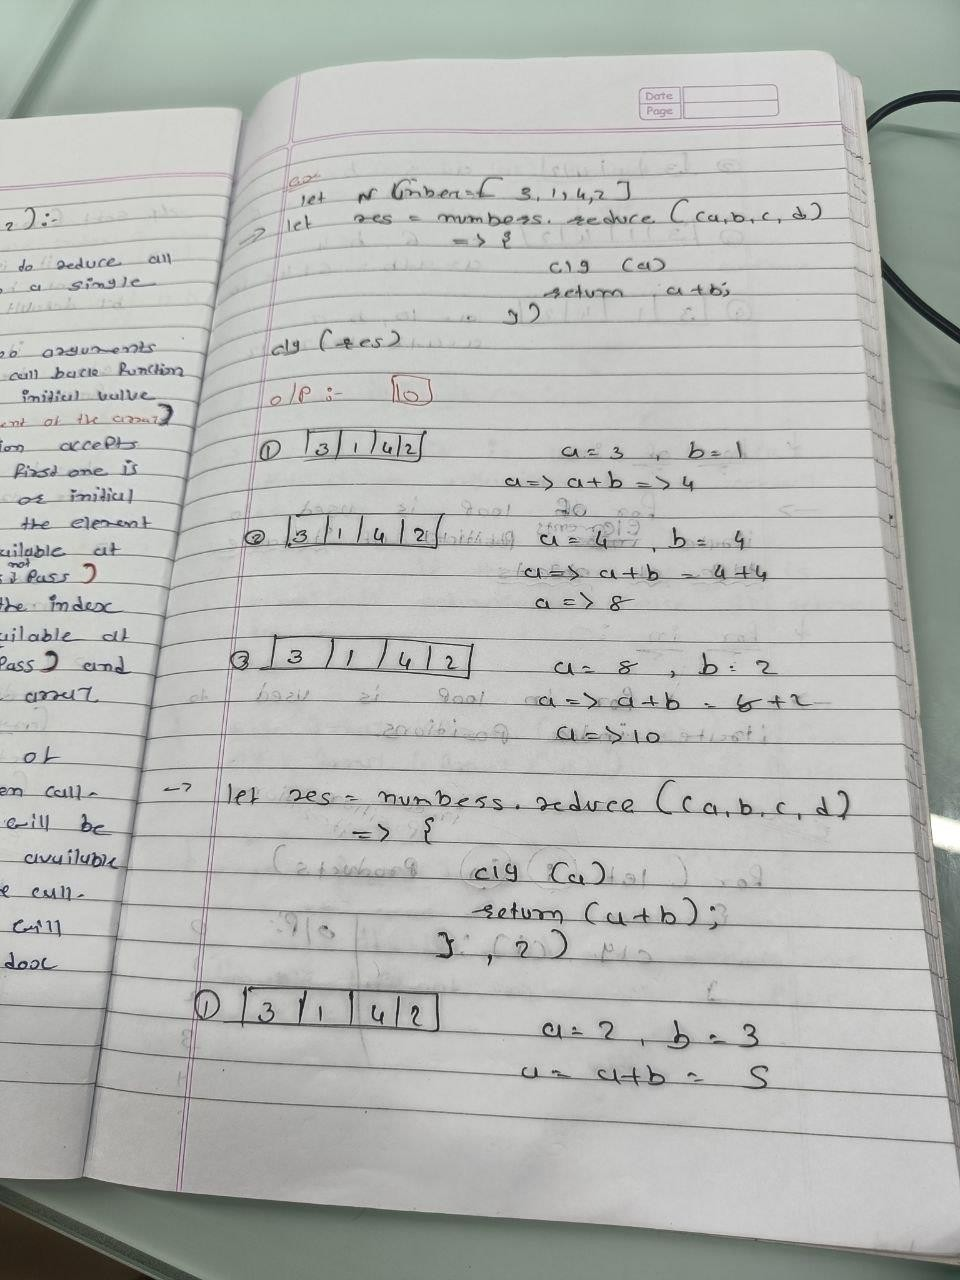 2):
do reduce all
a single
arguments
call back function
initial value
ent of the array)
ion accepts
first one is
or initial
the element
ailable at
not
Pass)
the index
ailable at
Pass) and
array
of
en call-
will be
available
e call-
will
Date
Page
ex
let Number=[ 3, 1, 4, 2 ]
-> let res = numbers. reduce ((a, b, c, d)
=> {
clg (a)
return a+b;
})
clg (res)
o/p :- 10
① 3 | 1 | 4 | 2 a = 3 , b = 1
a => a+b => 4
② 3 | 1 | 4 | 2 a = 4 , b = 4
a => a+b = 4+4
a => 8
③ 3 | 1 | 4 | 2 a = 8 , b = 2
a => a+b = 8+2
a => 10
-> let res = numbers. reduce ((a, b, c, d)
=> {
clg (a)
return (a+b);
} , 2)
① 3 | 1 | 4 | 2 a = 2 , b = 3
a = a+b = 5